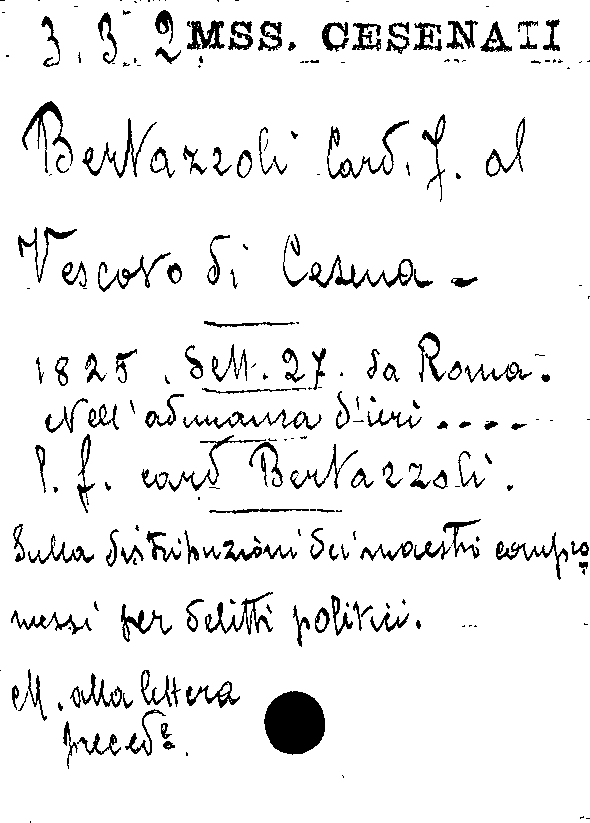 3.3.2 MSS. CESENATI
Bertazzoli Card. F. al
Vescovo di Cesena -
1825. Sett. 27. da Roma.
Nell'adunanza d'ieri ....
f. card Bertazzoli.
Sulla distribuzioni dei maestri compro
messi per delitti politici.
alla lettera
preced.